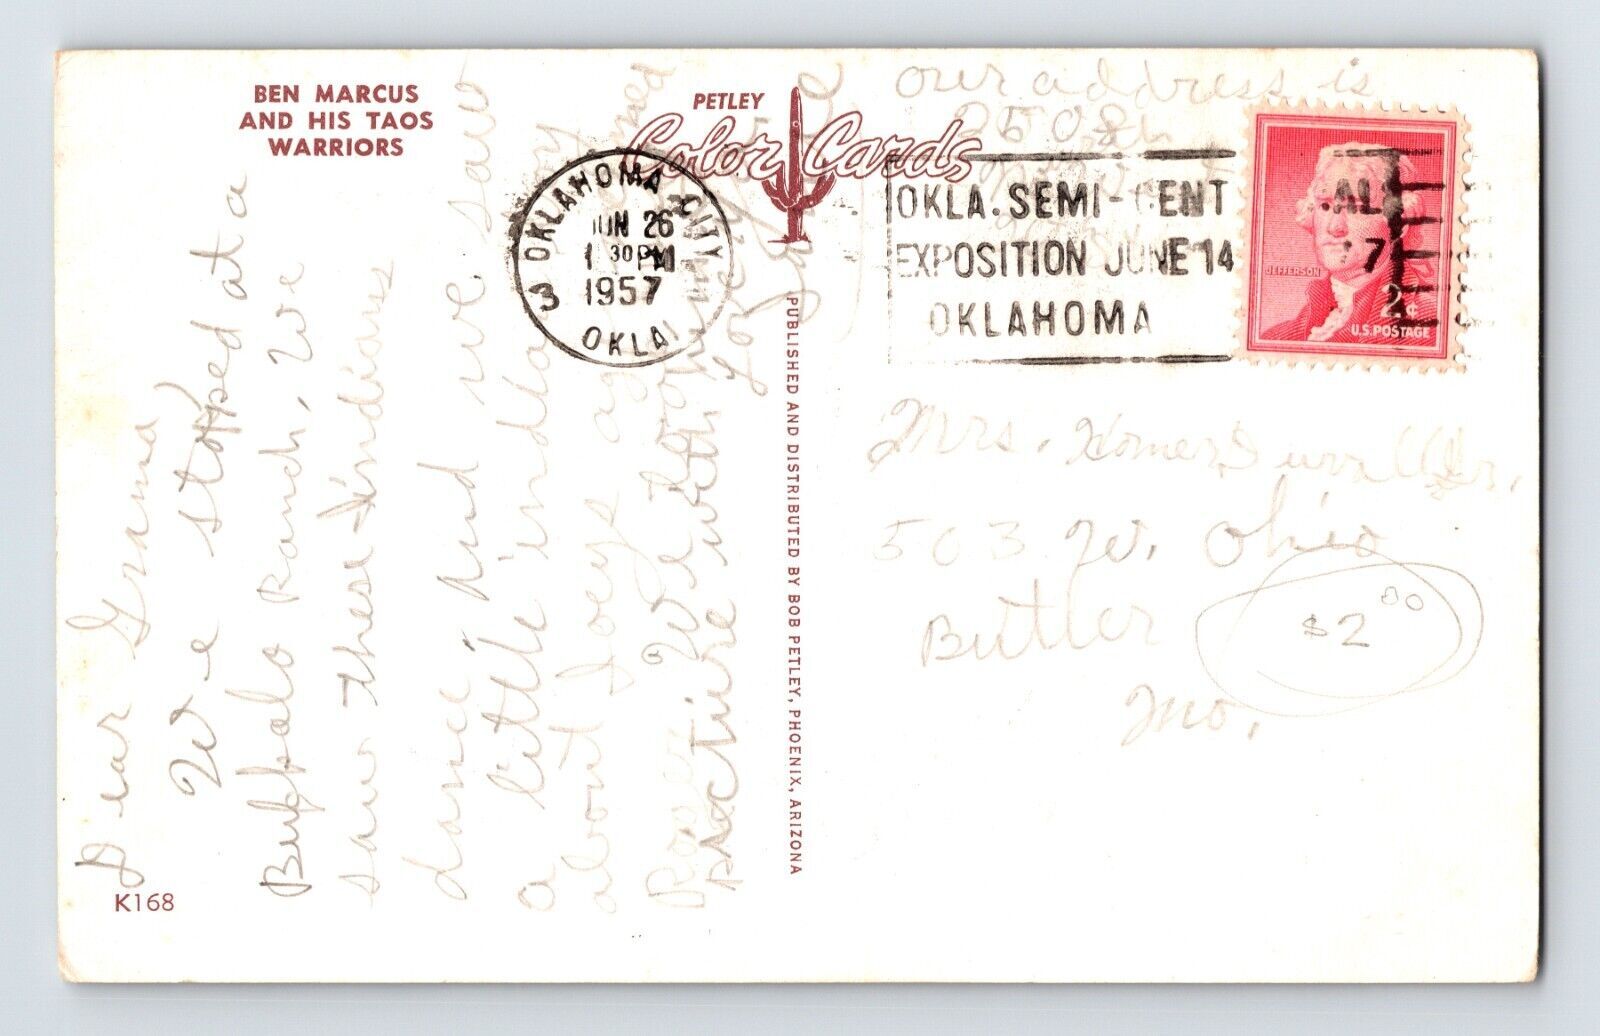 BEN MARCUS
AND HIS TAOS
WARRIORS
PETLEY
Color Cards
our address is
2508
OKLAHOMA CITY
3
JUN 26
1 30 PM
1957
OKLA
OKLA. SEMI-CENT
EXPOSITION JUNE 14
OKLAHOMA
7
JEFFERSON
2¢
U.S. POSTAGE
Dear Grama
We stopped at a
Buffalo Ranch, We
saw these Indians
dance and we saw
a little indian boy
about Joeys age named
Roser We
picture with
Love
PUBLISHED AND DISTRIBUTED BY BOB PETLEY, PHOENIX, ARIZONA
Mrs. Homer Duvall Sr.
503 W. Ohio
Butler
Mo.
$2.00
K168